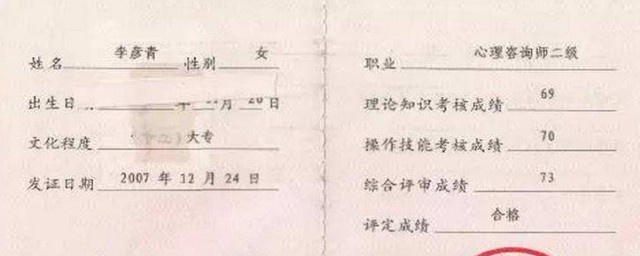 姓名 李彦青 性别 女
出生日 年 月 20日
文化程度 大专
发证日期 2007 年 12 月 24 日
职业 心理咨询师二级
理论知识考核成绩 69
操作技能考核成绩 70
综合评审成绩 73
评定成绩 合格